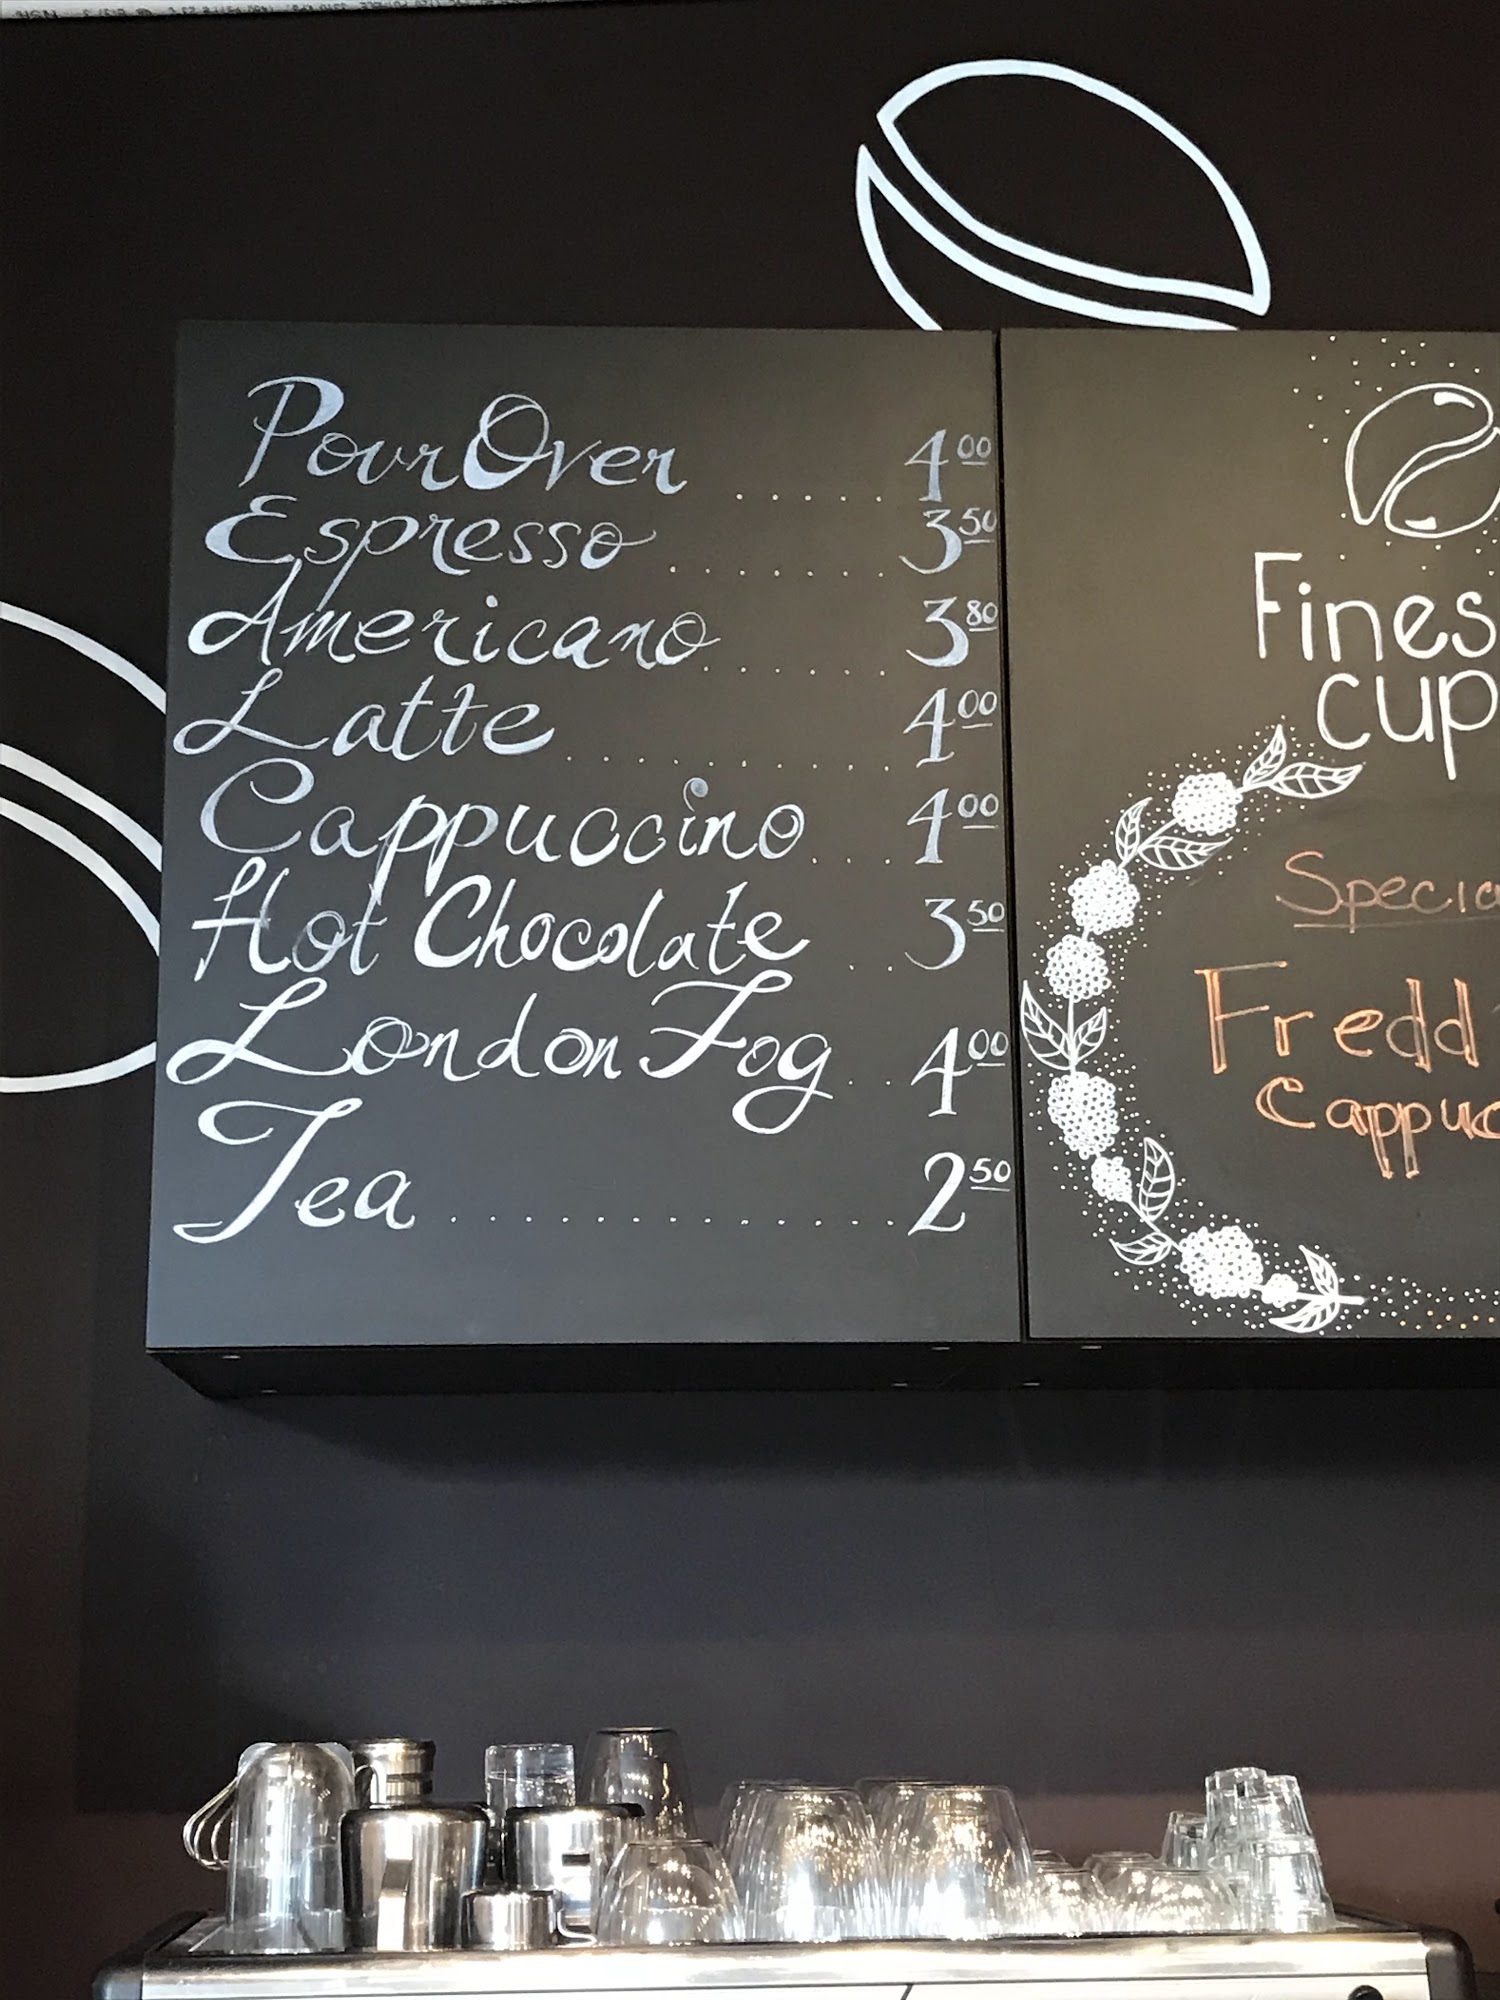 Pour Over ..... 4.00
Espresso ....... 3.50
Americano ...... 3.80
Latte ......... 4.00
Cappuccino .... 4.00
Hot Chocolate ... 3.50
London Fog .. 4.00
Tea ............... 2.50
Fines
cup
Specia
Fredd
Cappuc